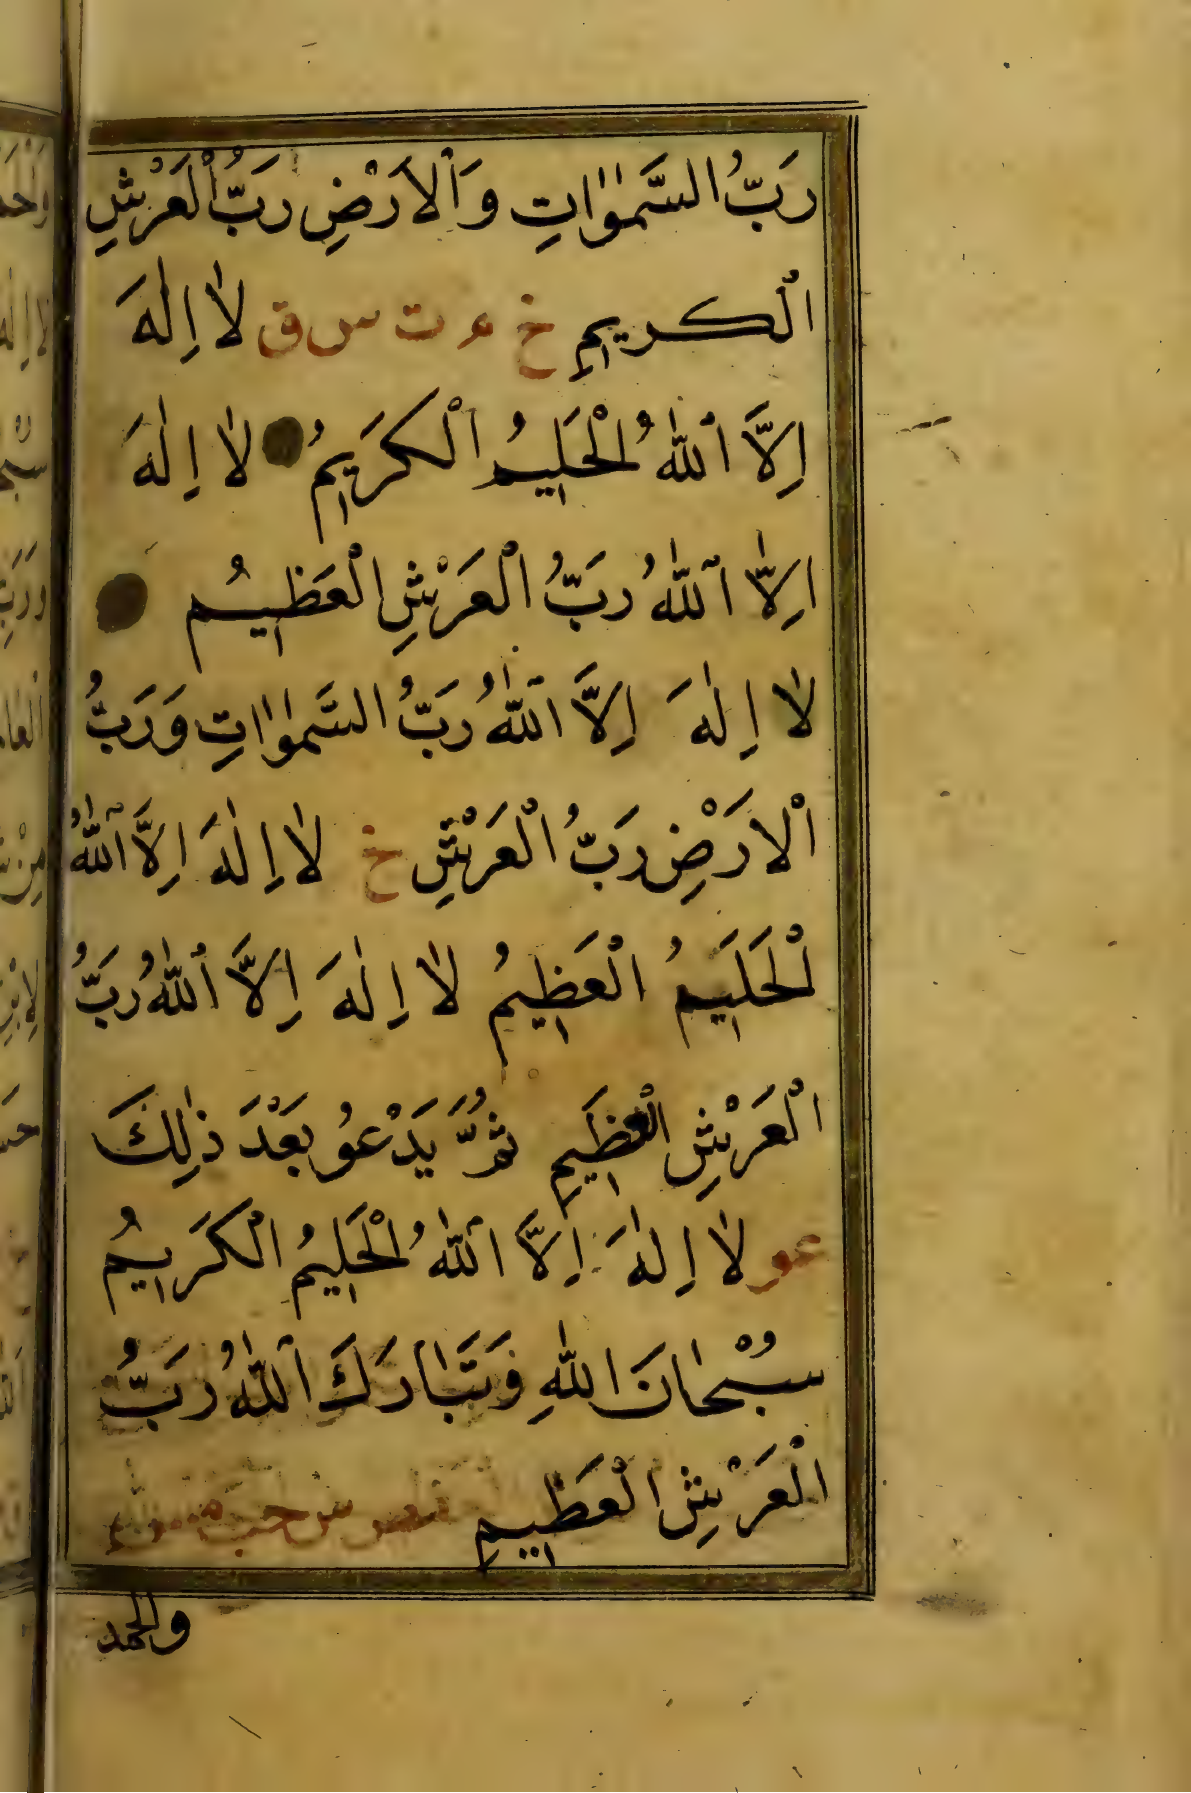 رَبُّ السَّمٰوٰاتِ وَٱلْاَرْضِ رَبُّ ٱلْعَرْشِ
الْكريمِ خ م ت س ق لٰا اِلٰهَ
اِلَّا ٱللّٰهُ الْحَلِيمُ الْكَرِيمُ لٰا اِلٰهَ
اِلّٰا ٱللّٰهُ رَبُّ الْعَرْشِ الْعَظِيمُ
لٰا اِلٰهَ اِلَّا ٱللّٰهُ رَبُّ السَّمٰوٰاتِ وَرَبُّ
الْاَرْضِ رَبُّ الْعَرْشِ خ لٰا اِلٰهَ اِلَّا ٱللّٰهُ
الْحَلَيمُ الْعَظِيمُ لٰا اِلٰهَ اِلَّا ٱللّٰهُ رَبُّ
الْعَرْشِ الْعَظَيمِ ثُمَّ يَدْعُو بَعْدَ ذٰلِكَ
عو لٰا اِلٰهَ اِلَّا ٱللّٰهُ الْحَلِيمُ الْكَرِيمُ
سُبْحٰانَ اللّٰهِ وَتَبٰارَكَ ٱللّٰهُ رَبُّ
الْعَرْشِ الْعَظِيمِ مص س حب مس
والحمد